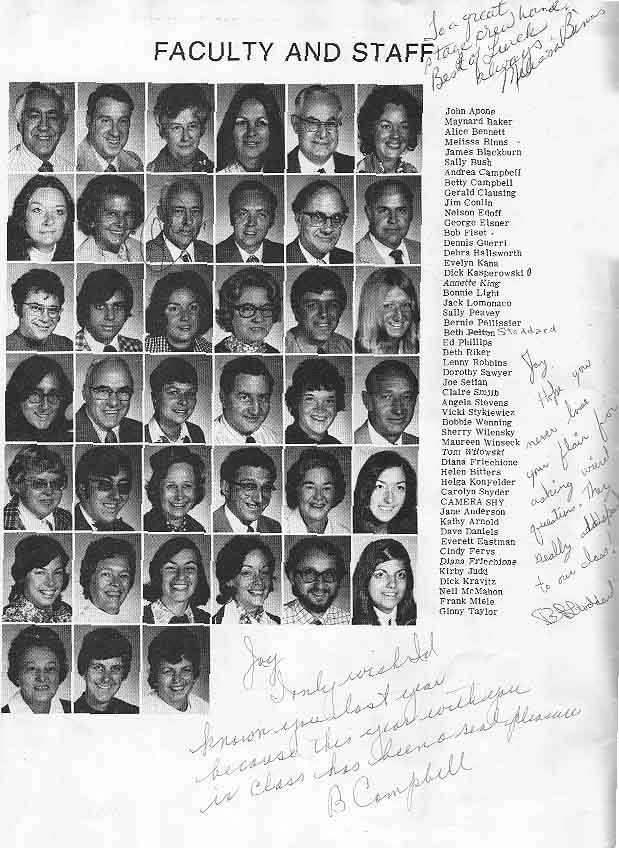 FACULTY AND STAFF
To a great
stage crew hand.
Best of Luck
Always
Melissa Binns
John Apone
Maynard Baker
Alice Bennett
Melissa Binns
James Blackburn
Sally Bush
Andrea Campbell
Betty Campbell
Gerald Clausing
Jim Conlin
Nelson Edoff
George Elsner
Bob Fiset
Dennis Guerri
Debra Hallsworth
Evelyn Kana
Dick Kasperowski
Annette King
Bonnie Light
Jack Lomonaco
Sally Peavey
Bernie Pellissier
Beth Pelton Stoddard
Ed Phillips
Beth Riker
Lenny Robbins
Dorothy Sawyer
Joe Setian
Claire Smith
Angela Stevens
Vicki Stykiewicz
Bobbie Wenning
Sherry Wilensky
Maureen Winseck
Tom Witowski
Diana Friechione
Helen Bitters
Helga Konfelder
Carolyn Snyder
CAMERA SHY
Jane Anderson
Kathy Arnold
Dave Daniels
Everett Eastman
Cindy Ferys
Diana Friechione
Kirby Judd
Dick Kravitz
Neil McMahon
Frank Miele
Ginny Taylor
Joy
Hope you
never lose
your flair for
asking weird
questions. They
really added
to our class!
B Stoddard
Joy
I only wish I'd
known you last year
because this year with you
in class has been a real pleasure
B Campbell